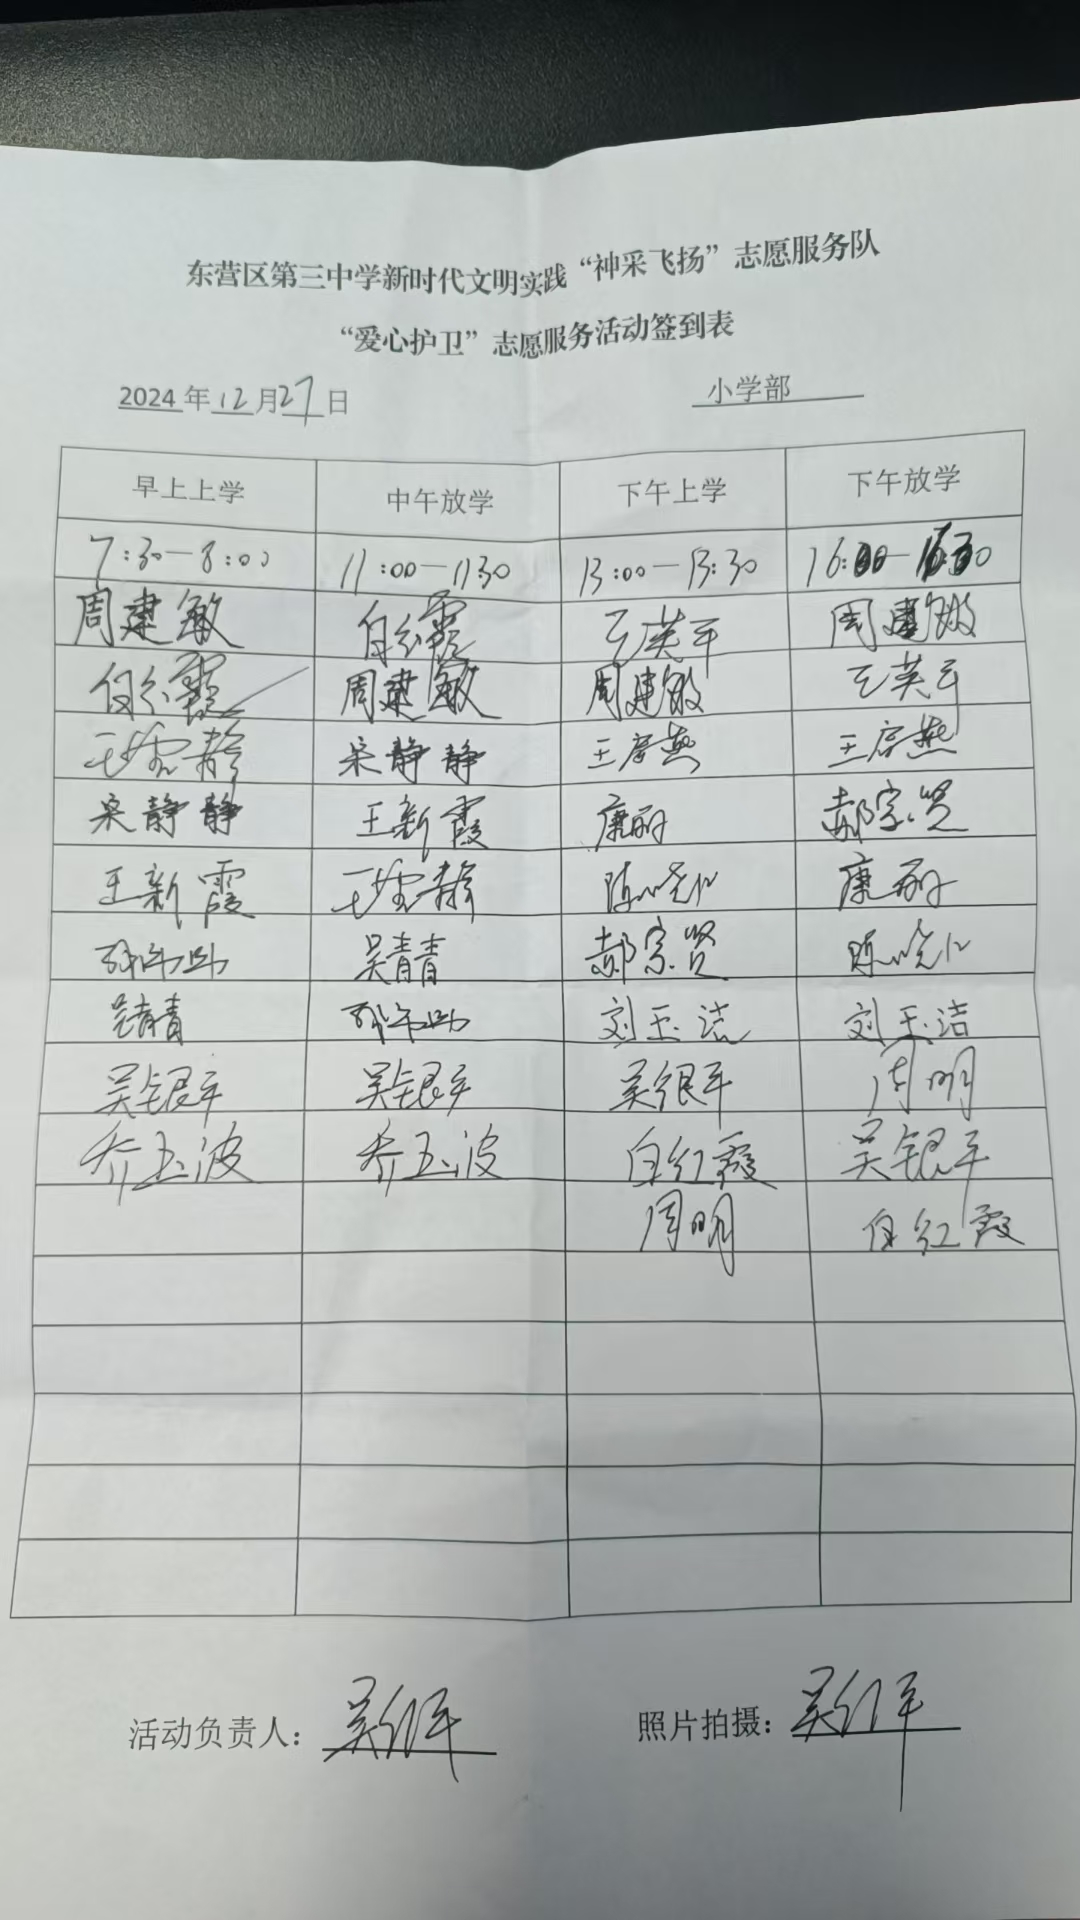 东营区第三中学新时代文明实践“神采飞扬”志愿服务队
“爱心护卫”志愿服务活动签到表
2024年12月27日 小学部
早上上学 中午放学 下午上学 下午放学
7:30-8:00 11:00-11:30 13:00-13:30 16:00-16:30
周建敏 白红霞 王英平 周建敏
白红霞 周建敏 周建敏 王英平
宋静静 王房燕 王房燕
宋静静 王新霞 康丽 郝宗贤
王新霞 陈晓红 康丽
吴青青 郝宗贤 陈晓红
吴青青 刘玉洁 刘玉洁
吴银平 吴银平 吴银平 周明
乔玉波 乔玉波 白红霞 吴银平
周明 白红霞
活动负责人：吴银平 照片拍摄：吴银平